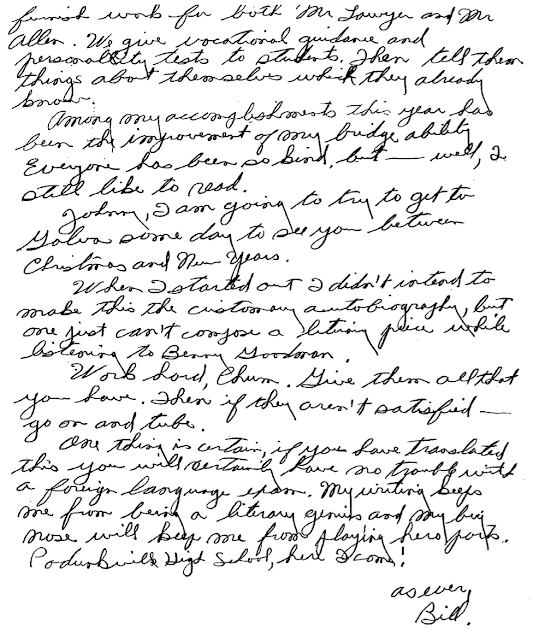 furnish work for both Mr Lawyer and Mr
Allen. We give vocational guidance and
personality tests to students. Then tell them
things about themselves which they already
know.
Among my accomplishments this year has
been the improvement of my bridge ability
Everyone has been so kind, but — well, I
still like to read.
Johnny, I am going to try to get to
Galva some day to see you between
Christmas and New Years.
When I started out I didn't intend to
make this the customary autobiography, but
one just can't compose a literary piece while
listening to Benny Goodman.
Work hard, Chum. Give them all that
you have. Then if they aren't satisfied —
go on and tube.
One thing is certain, if you have translated
this you will certainly have no trouble with
a foreign language exam. My writing keeps
me from being a literary genius and my big
nose will keep me from playing hero parts.
Podunkville High School, here I come!
as ever,
Bill.